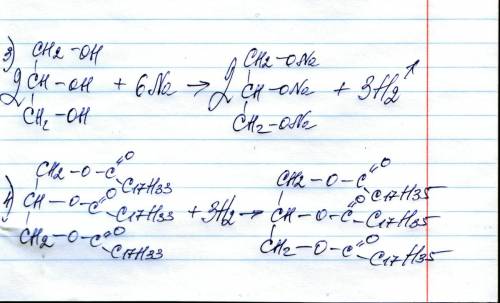 3) CH2-OH CH2-ONa
2 CH-OH + 6Na → 2 CH-ONa + 3H2↑
CH2-OH CH2-ONa
4) CH2-O-C=O C17H33 CH2-O-C=O C17H35
CH-O-C=O C17H33 + 3H2 → CH-O-C=O C17H35
CH2-O-C=O C17H33 CH2-O-C=O C17H35